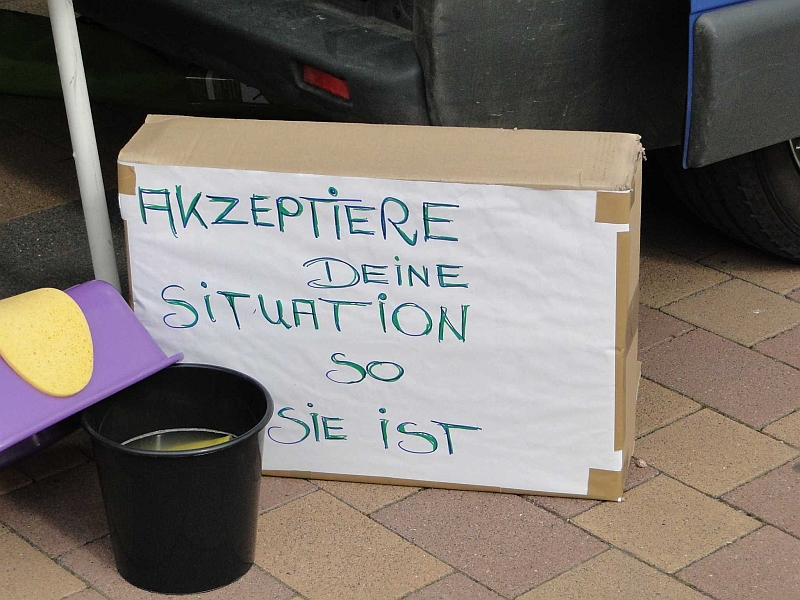 AKZEPTIERE
DEINE
SITUATION
SO
SIE IST